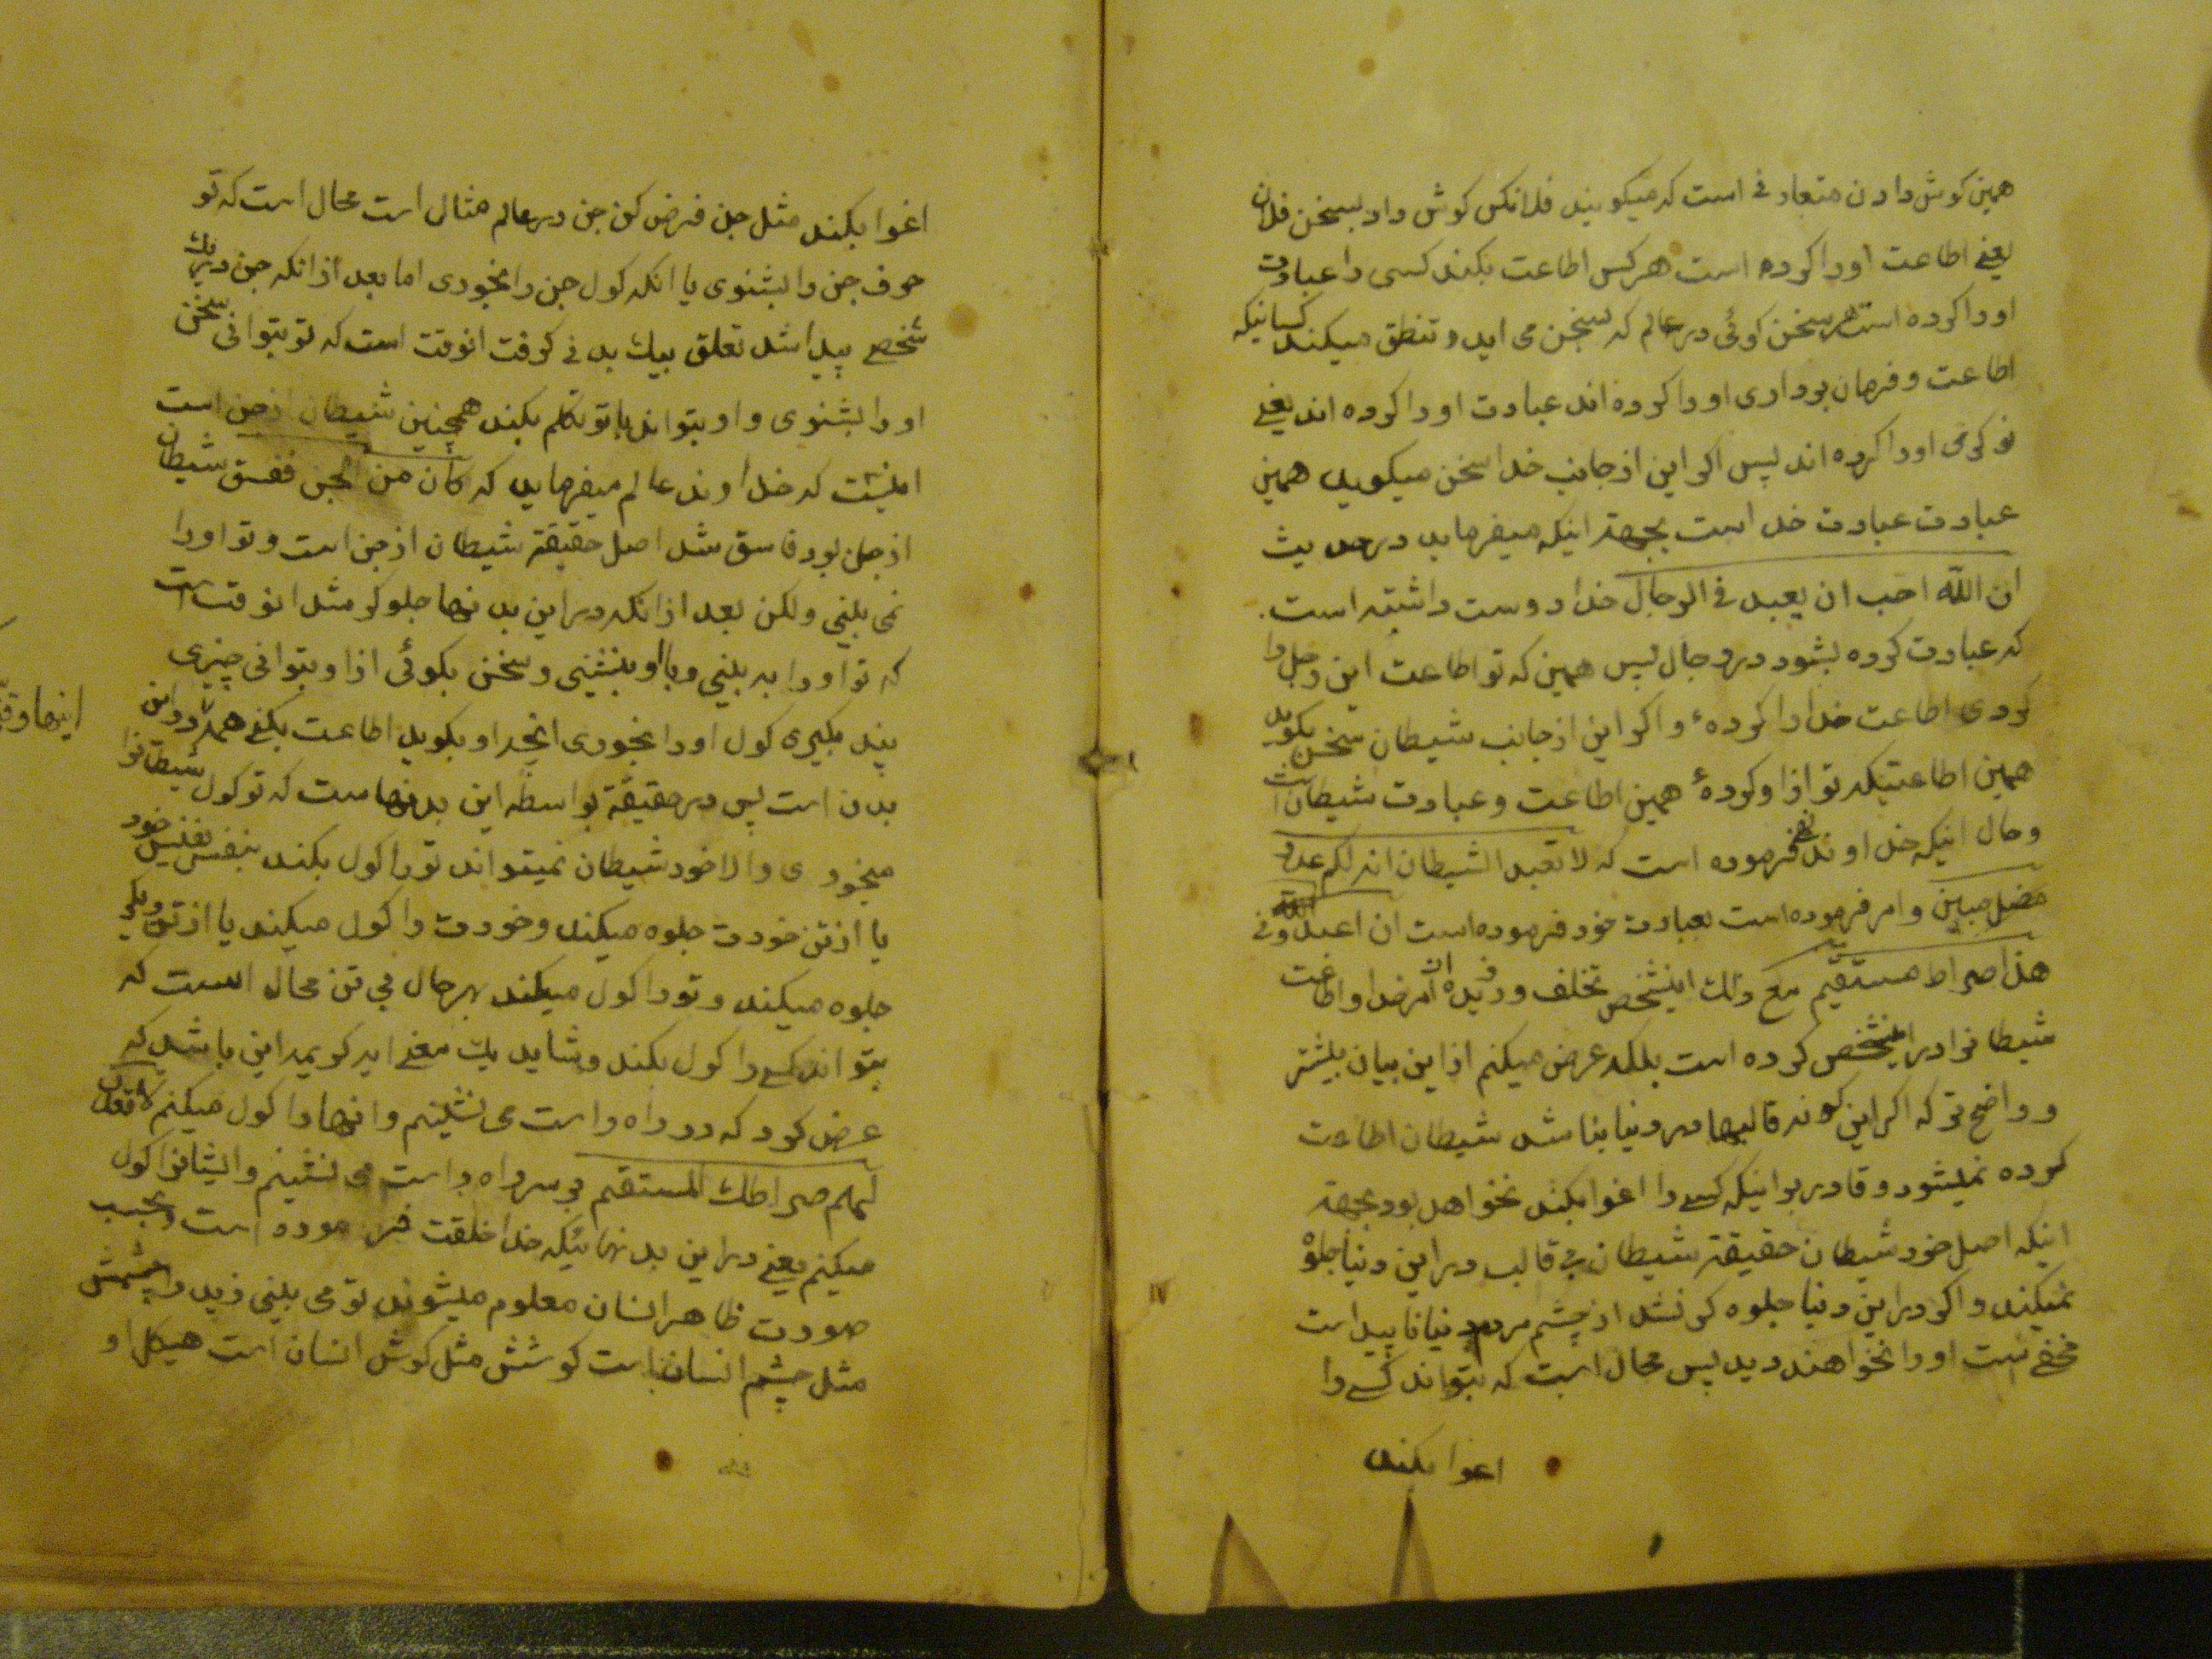 همین کوش دادن متعارفی است که میکویند فلانکس کوش داد بسخن فلان
یعنی اطاعت اورا کرده است هرکس اطاعت بکند کسی را عبادت
اورا کرده است هر سخن کوئی در عالم که بسخن می اید و تنطق میکند کسانیکه
اطاعت و فرمان برداری اورا کرده اند عبادت اورا کرده اند یعنی
نوکری اورا کرده اند پس اکر این از جانب خدا سخن میکوید همین
عبادت عبادت خدا است بجهة اینکه میفرماید در حدیث
ان الله احب ان یعبد فی الرجال خدا دوست داشته است
که عبادت کرده بشود در رجال پس همین که تو اطاعت این رجل را
کردی اطاعت خدا را کردهٔ و اکر این از جانب شیطان سخن بکوید
همین اطاعتیکه تو ازاو کردهٔ همین اطاعت و عبادت شیطان است
و حال اینکه خداوند فرموده است که لا تعبد الشیطان انه لکم عدو
مضل مبین و امر فرموده است بعبادت خود فرموده است ان اعبدونی
هذا صراط مستقیم مع ذلک اینشخص تخلف ورزیده از امر خدا و اطاعت
شیطانرا در اینشخص کرده است بلکه عرض میکنم ازاین بیان بیشتر
و واضح تر که اکر این کونه قالبها در دنیا بنا شد شیطان اطاعت
کرده نمیشود و قادر بر اینکه کسی را اغوا بکند نخواهد بود بجهة
اینکه اصل خود شیطان حقیقة شیطان بی قالب در این دنیا جلوه
نمیکند و اکر در این دنیا جلوه کر نشد از چشم مردم دنیا ناپیدا است
مخفی است اورا نخواهند دید پس محال است که بتواند کسی را
اغوا بکند
اغوا بکند مثل جن فرض کن جن در عالم مثال است محال است که تو
حرف جن را بشنوی یا انکه کول جن را بخوری اما بعد از انکه جن در یک
شخصی پیدا شد تعلق بیک بدنی کرفت انوقت است که تو بتوانی سخن
اورا بشنوی و او بتواند با تو تکلم بکند همچنین شیطان از جن است
اینست که خداوند عالم میفرماید که کان من الجن ففسق شیطان
از جن بود فاسق شد اصل حقیقة شیطان از جن است و تو اورا
نمی بینی ولکن بعد از انکه در این بدنها جلوه کر شد انوقت است
که تو اورا به بینی و با او بنشینی و سخن بکوئی ازاو بتوانی چیزی
پند بکیری کول اورا بخوری انچه او بکوید اطاعت بکنی همه در این
بدن است پس در حقیقة بواسطه این بدنهاست که تو کول شیطانرا
میخوری و الا خود شیطان نمیتواند تو را کول بکند بنفس نفیس خود
یا از تن خودت جلوه میکند و خودت را کول میکند یا از تن دیکری
جلوه میکند و تورا کول میکند بهر حال بی تن محال است که
بتواند کسی را کول بکند و شاید یک معنی ایه کریمه این باشد که
عرض کرد که در راه راست می نشینم و انها را کول میکنم لاقعدن
لهم صراطک المستقیم بر سر راه راست می نشینم و ایشانرا کول
میکنم یعنی در این بدنهائیکه خدا خلقت فرموده است و بحسب
صورت ظاهر انسان معلوم میشوند تو می بینی زید را چشمش
مثل چشم انسان است کوشش مثل کوش انسان است هیکل او